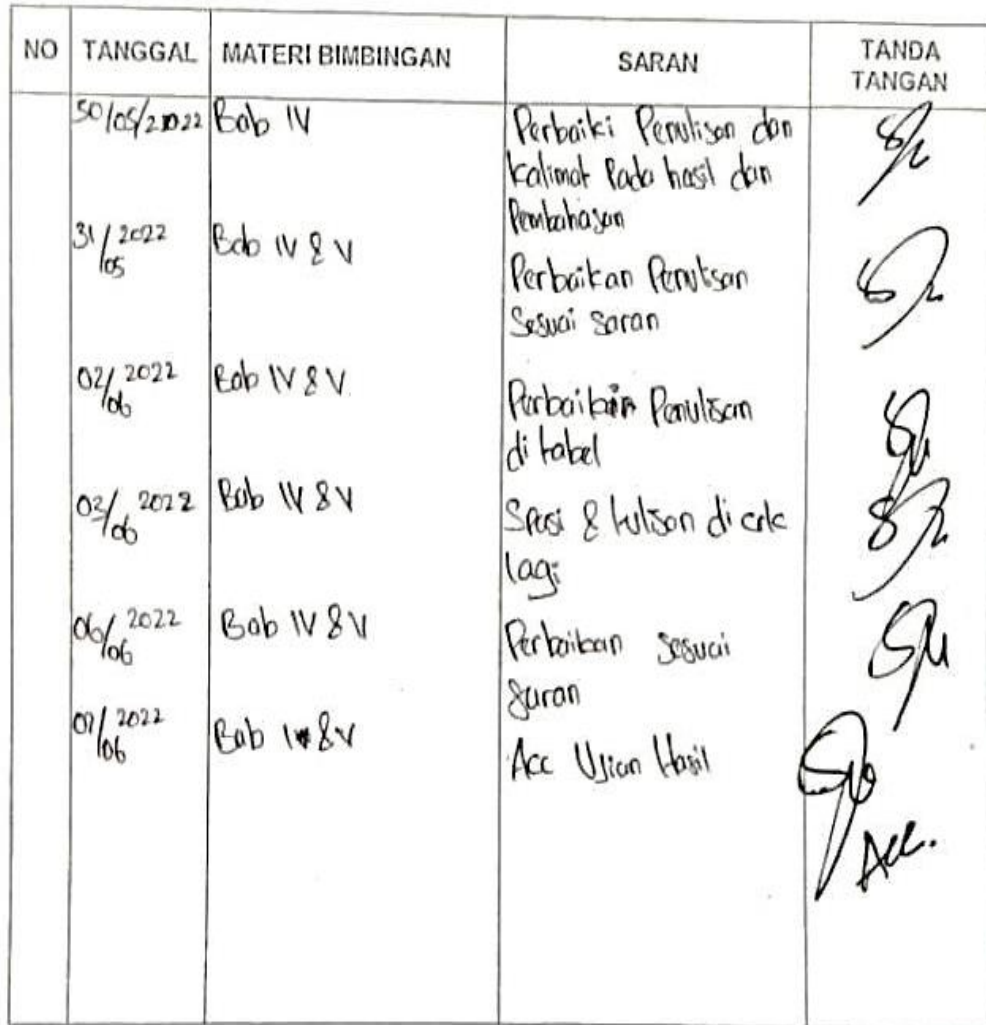 NO TANGGAL MATERI BIMBINGAN SARAN TANDA TANGAN
30/05/2022 Bab IV Perbaiki Penulisan dan
kalimat Pada hasil dan
Pembahasan
31/05 2022 Bab IV & V
Perbaikan Penulisan
Sesuai saran
02/06 2022 Bab IV & V
Perbaikan Penulisan
di tabel
03/06 2022 Bab IV & V Spasi & tulisan di cek
lagi
06/06 2022 Bab IV & V Perbaikan sesuai
saran
07/06 2022 Bab IV & V Acc Ujian Hasil
Acc.